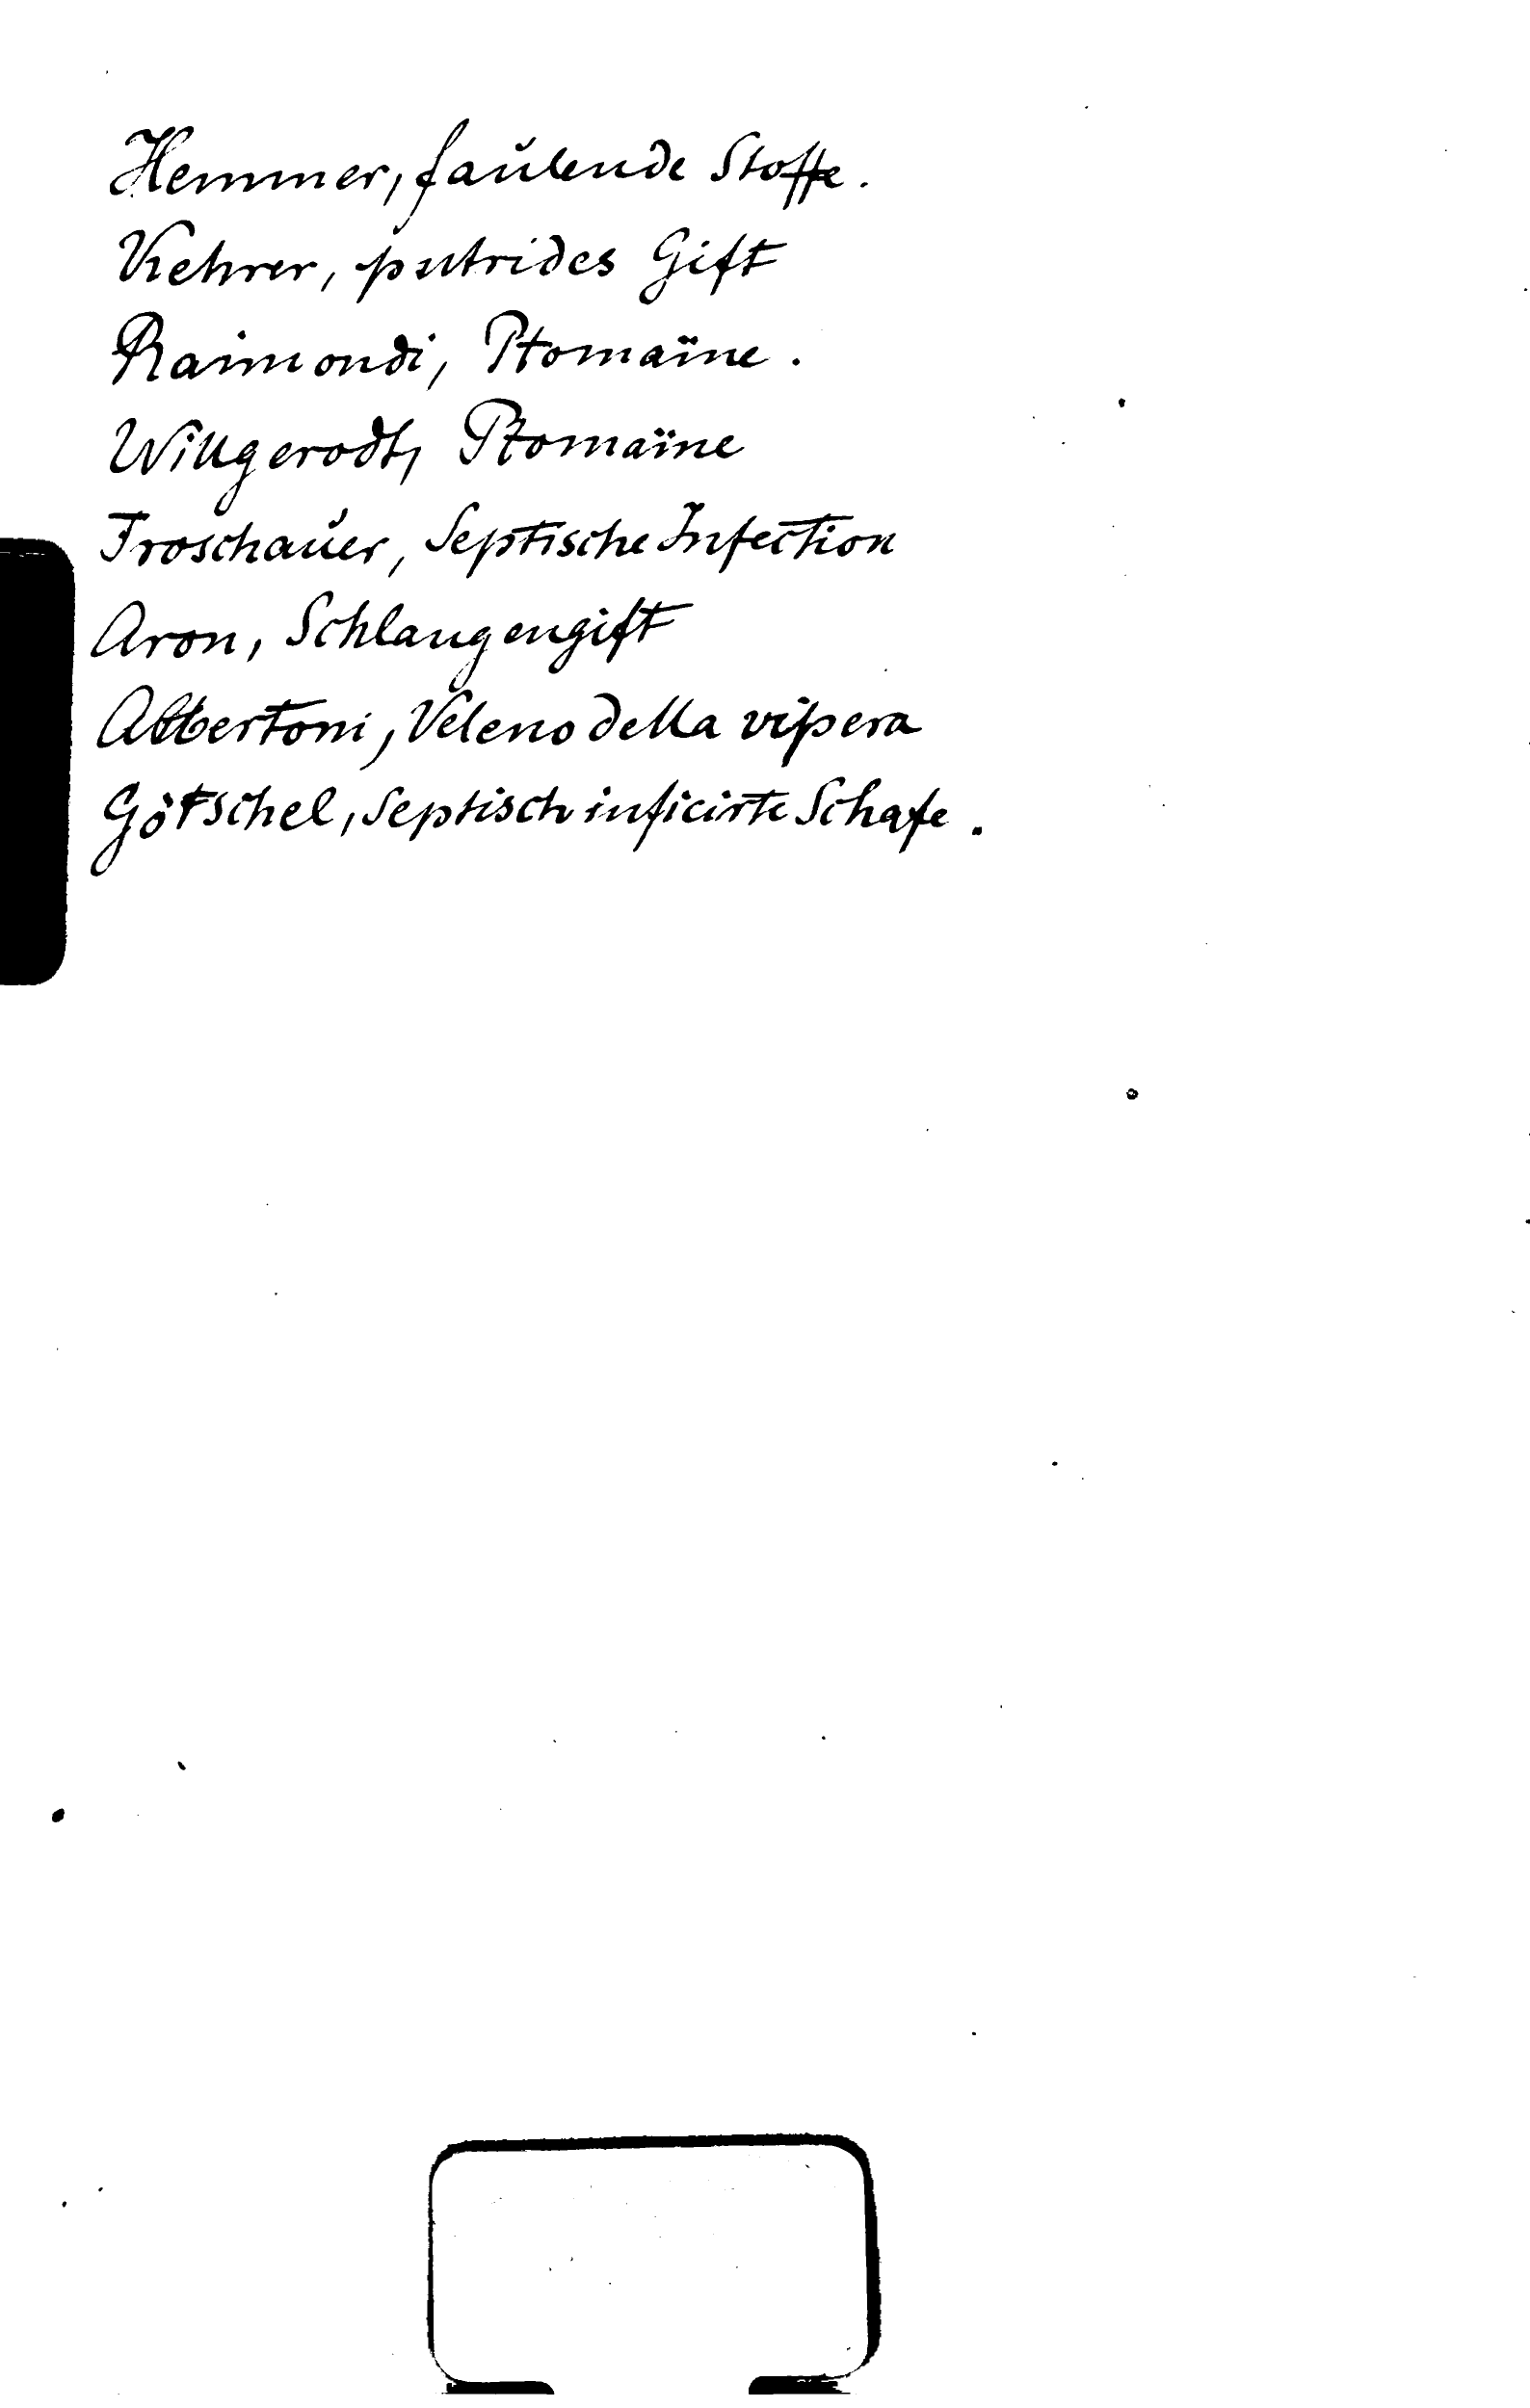 Hemmer, faulende Stoffe.
Kehrer, putrides Gift
Raimondi, Ptomaïne.
Willgerodt, Ptomaïne
Froschauer, Septische Infection
Aron, Schlangengift
Albertoni, Veleno della vipera
Götschel, Septisch inficirte Schafe.